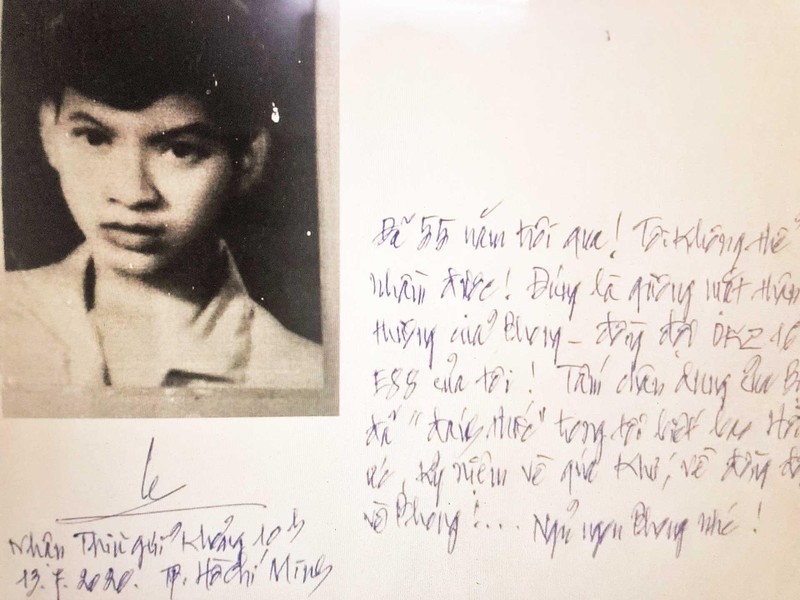 Đã 55 năm trôi qua! Tôi không thể
nhầm được! Đúng là gương mặt thân
thương của Phong - đồng đội DKZ 16
E88 của tôi! Tấm chân dung của
đã "đánh thức" trong tôi biết bao
ức, kỷ niệm về quá khứ, về đồng
về Phong!... Ngủ ngon Phong nhé!
Nhân Thiìn gửi Khổng 10h
13.7.2020. TP. Hồ Chí Minh